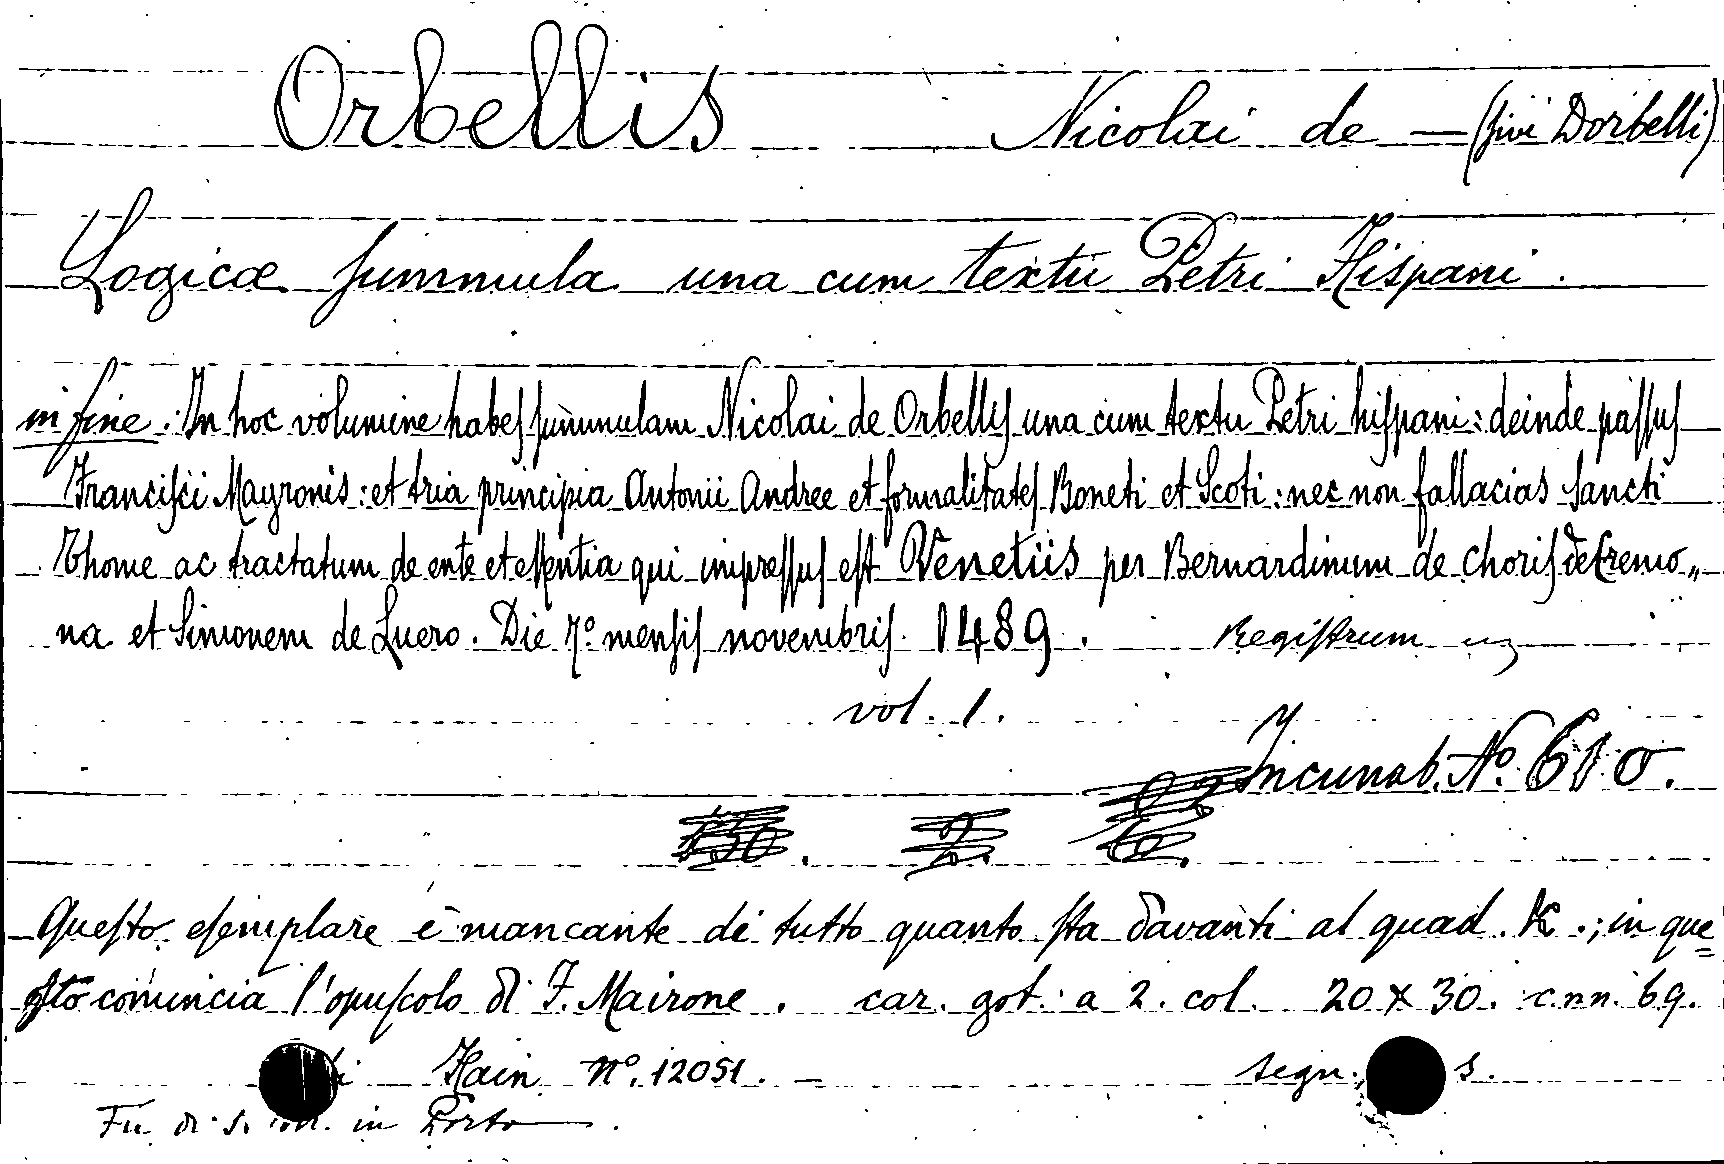 Orbellis Nicolai de — (sive Dorbelli)
Logicæ summula una cum textu Petri Hispani.
in fine: In hoc volumine habes summulam Nicolai de Orbellis una cum textu Petri hispani: deinde passus
Francisci Mayronis: et tria principia Antonii Andree et formalitates Boneti et Scoti: nec non fallacias sancti
Thome ac tractatum de ente et essentia qui impressus est Venetiis per Bernardinum de choris de Cremo„
na et Simonem de Luero. Die 7º mensis novembris 1489. Registrum
vol. 1.
Incunab. Nº 610.
Questo esemplare è mancante di tutto quanto sta davanti al quad. K.; in que=
sto comincia l'opuscolo di F. Mairone. car. got. a 2. col. 20 x 30. c.nn. 69.
Hain nº. 12051. — segn. s.
in Porto